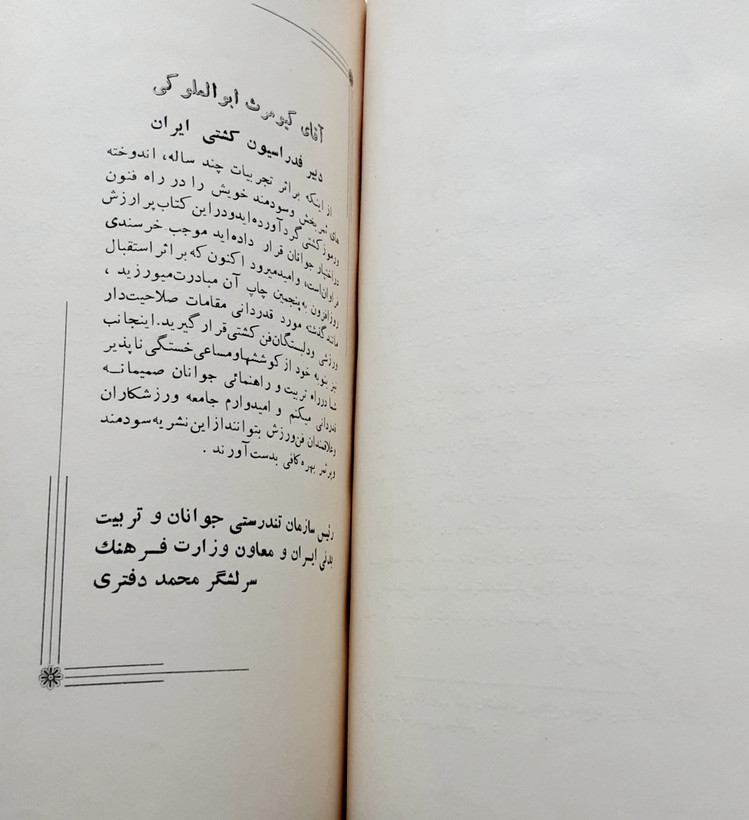 آقای کیومرث ابوالملوکی
دبیر فدراسیون کشتی ایران
از اینکه براثر تجربیات چند ساله، اندوخته
های ثمربخش وسودمند خویش را در راه فنون
ورموزکشتی گردآورده‌ایدودراین کتاب پرارزش
دراختیار جوانان قرار داده‌اید موجب خرسندی
فراوان‌است، وامیدمیرود اکنون که براثراستقبال
روزافزون به‌پنجمین چاپ آن مبادرت‌میورزید ،
مانندگذشته مورد قدردانی مقامات صلاحیت‌دار
ورزشی ودلبستگان‌فن‌کشتی‌قرارگیرید.اینجانب
نیز بنوبه خود ازکوششهاومساعی‌خستگی‌ناپذیر
شمادرراه تربیت و راهنمائی جوانان صمیمانـه
قدردانی میکنم و امیدوارم جامعه ورزشکاران
وعلاقمندان فن‌ورزش بتوانندازاین‌نشریه‌سودمند
وپرثمر بهره‌کافی بدست‌آورند .
رئیس سازمان تندرستی جوانان و تربیت
بدنی ایران و معاون وزارت فـرهنك
سرلشگر محمد دفتری